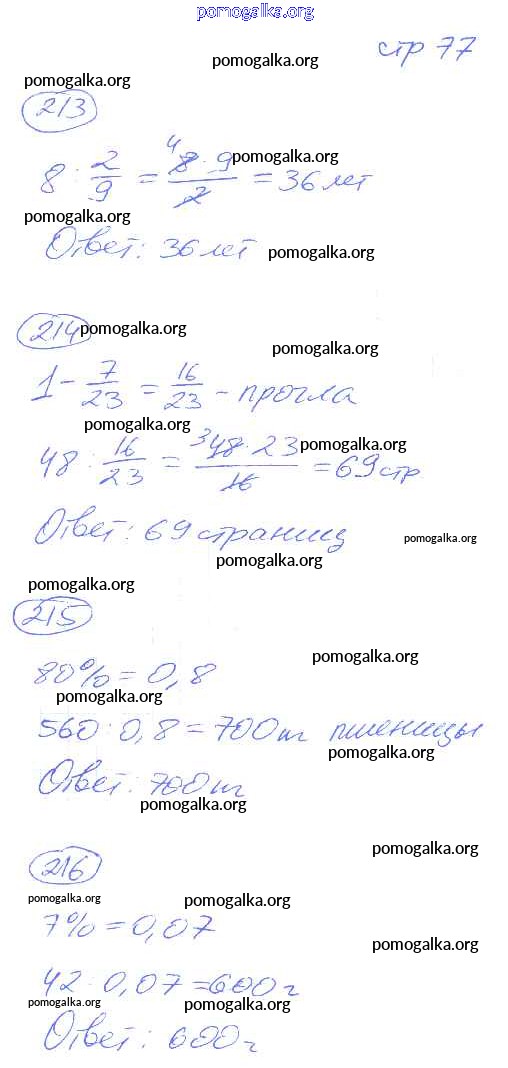 pomogalka.org
стр 77
pomogalka.org
pomogalka.org
213
8 : 2/9 = 4 8 · 9 / 2 = 36 лет
pomogalka.org
pomogalka.org
Ответ: 36 лет
pomogalka.org
214
pomogalka.org
pomogalka.org
1 - 7/23 = 16/23 - прочла
pomogalka.org
48 : 16/23 = 3 48 · 23 / 16 = 69 стр
pomogalka.org
Ответ: 69 страниц
pomogalka.org
pomogalka.org
pomogalka.org
215
pomogalka.org
80% = 0,8
pomogalka.org
560 : 0,8 = 700 т пшеницы
pomogalka.org
Ответ: 700 т
pomogalka.org
pomogalka.org
216
pomogalka.org
pomogalka.org
7% = 0,07
pomogalka.org
42 : 0,07 = 600 г
pomogalka.org
pomogalka.org
Ответ: 600 г